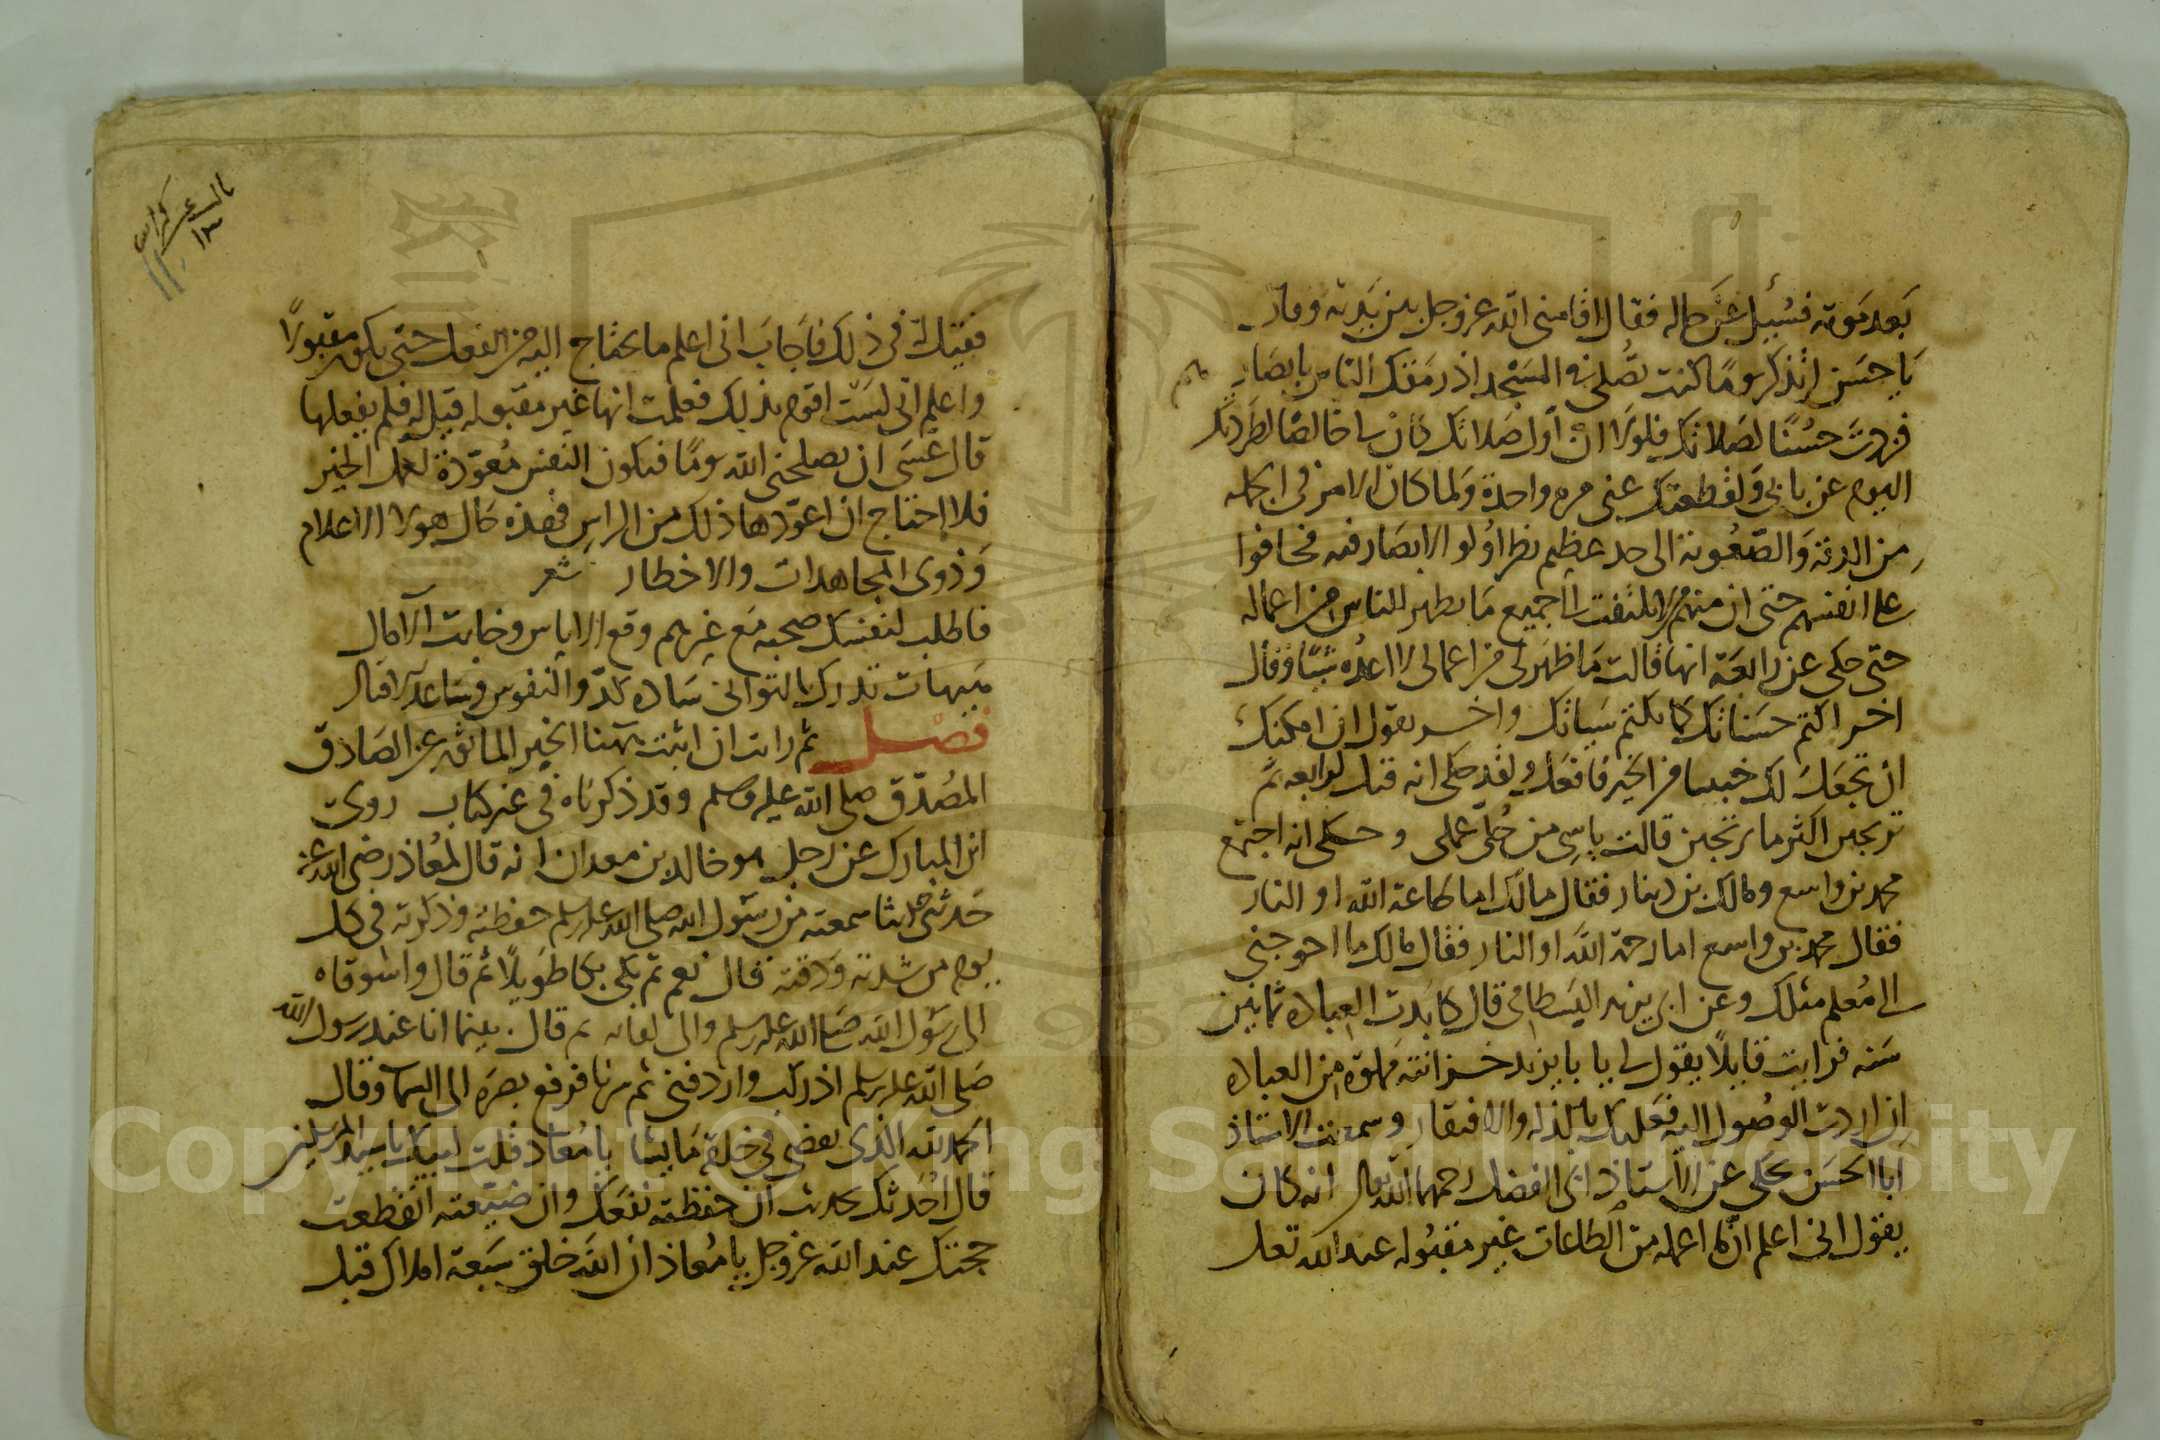 بعد موته فسئل عن حاله فقال اقامني الله عز وجل بين يديه وقال
يا حسن اتذكر يوما كنت تصلي في المسجد اذ رمقك الناس بابصارهم
فزدت حسنا لصلاتك فلولا ان اول صلاتك كان لي خالصا لطردتك
اليوم عن بابي ولقطعتك عني مرة واحدة ولما كان الامر في الجملة
من الدقة والصعوبة الى حد عظيم نظر اولو الابصار فيه فخافوا
على انفسهم حتى ان منهم من لا يلتفت الى جميع ما يظهر للناس من اعماله
حتى حكي عن رابعة انها قالت ما ظهر لي من اعمالي لا اعده شيئا وقال
اخر اكتم حسناتك كما تكتم سياتك واخر يقول ان امكنك
ان تجعل لك خبيا من الخير فافعل ولقد حكي انه قيل لرابعة بم
ترتجين اكثر ما ترتجين قالت باسي من جل عملي وحكي انه اجتمع
محمد بن واسع ومالك بن دينار فقال مالك اما طاعة الله او النار
فقال محمد بن واسع اما رحمة الله او النار فقال مالك ما احوجني
الى معلم مثلك وعن ابي يزيد البسطامي قال كابدت العبادة ثلاثين
سنه فرايت قايلا يقول لي يا با يزيد خزائنه مملوة من العبادة
ان اردت الوصول اليه فعليك بالذلة والافتقار وسمعت الاستاذ
ابا الحسن يحكي عن الاستاذ ابي الفضل رحمهما الله تعالى انه كان
يقول اني اعلم ان ما اعمله من الطاعات غير مقبولة عند الله تعالى
فقيل له في ذلك فاجاب اني اعلم ما يحتاج اليه من الفعل حتى يكون مقبولا
واعلم اني لست اقوم بذلك فعلمت انها غير مقبولة قيل له فلم يفعلها
قال عسى ان يصلحني الله يوما فتكون النفس معودة لعمل الخير
فلا احتاج ان اعودها ذلك من الراس فهذه حال هولا الاعلام
وذوي المجاهدات والاخطار شعر
فاطلب لنفسك صحبة مع غيرهم وقع الاياس وخابت الآمال
هيهات تدرك بالتواني سادة كدوا النفوس وساعد الاقبال
فصل ثم رايت ان اثبت ههنا الخبر الماثور عن الصادق
المصدق صلى الله عليه وسلم وقد ذكرناه في غير كتاب روى
ابن المبارك عن رجل هو خالد بن معدان انه قال لمعاذ رضي الله عنه
حدثني حديثا سمعته من رسول الله صلى الله عليه وسلم حفظته وذكرته في كل
يوم من شدته ودقته قال نعم ثم بكى بكا طويلا ثم قال واشوقاه
الى رسول الله صلى الله عليه وسلم والى لقائه ثم قال بينما انا عند رسول الله
صلى الله عليه وسلم اذ ركب واردفني ثم سرنا فرفع بصره الى السما وقال
الحمد لله الذي يقضي في خلقه ما يشا يا معاذ قلت لبيك يا سيد المرسلين
قال احدثك بحديث ان حفظته نفعك وان ضيعته انقطعت
حجتك عند الله عز وجل يا معاذ ان الله خلق سبعة املاك قبل
ثالث عشر كراس
١٣
Copyright © King Saud University